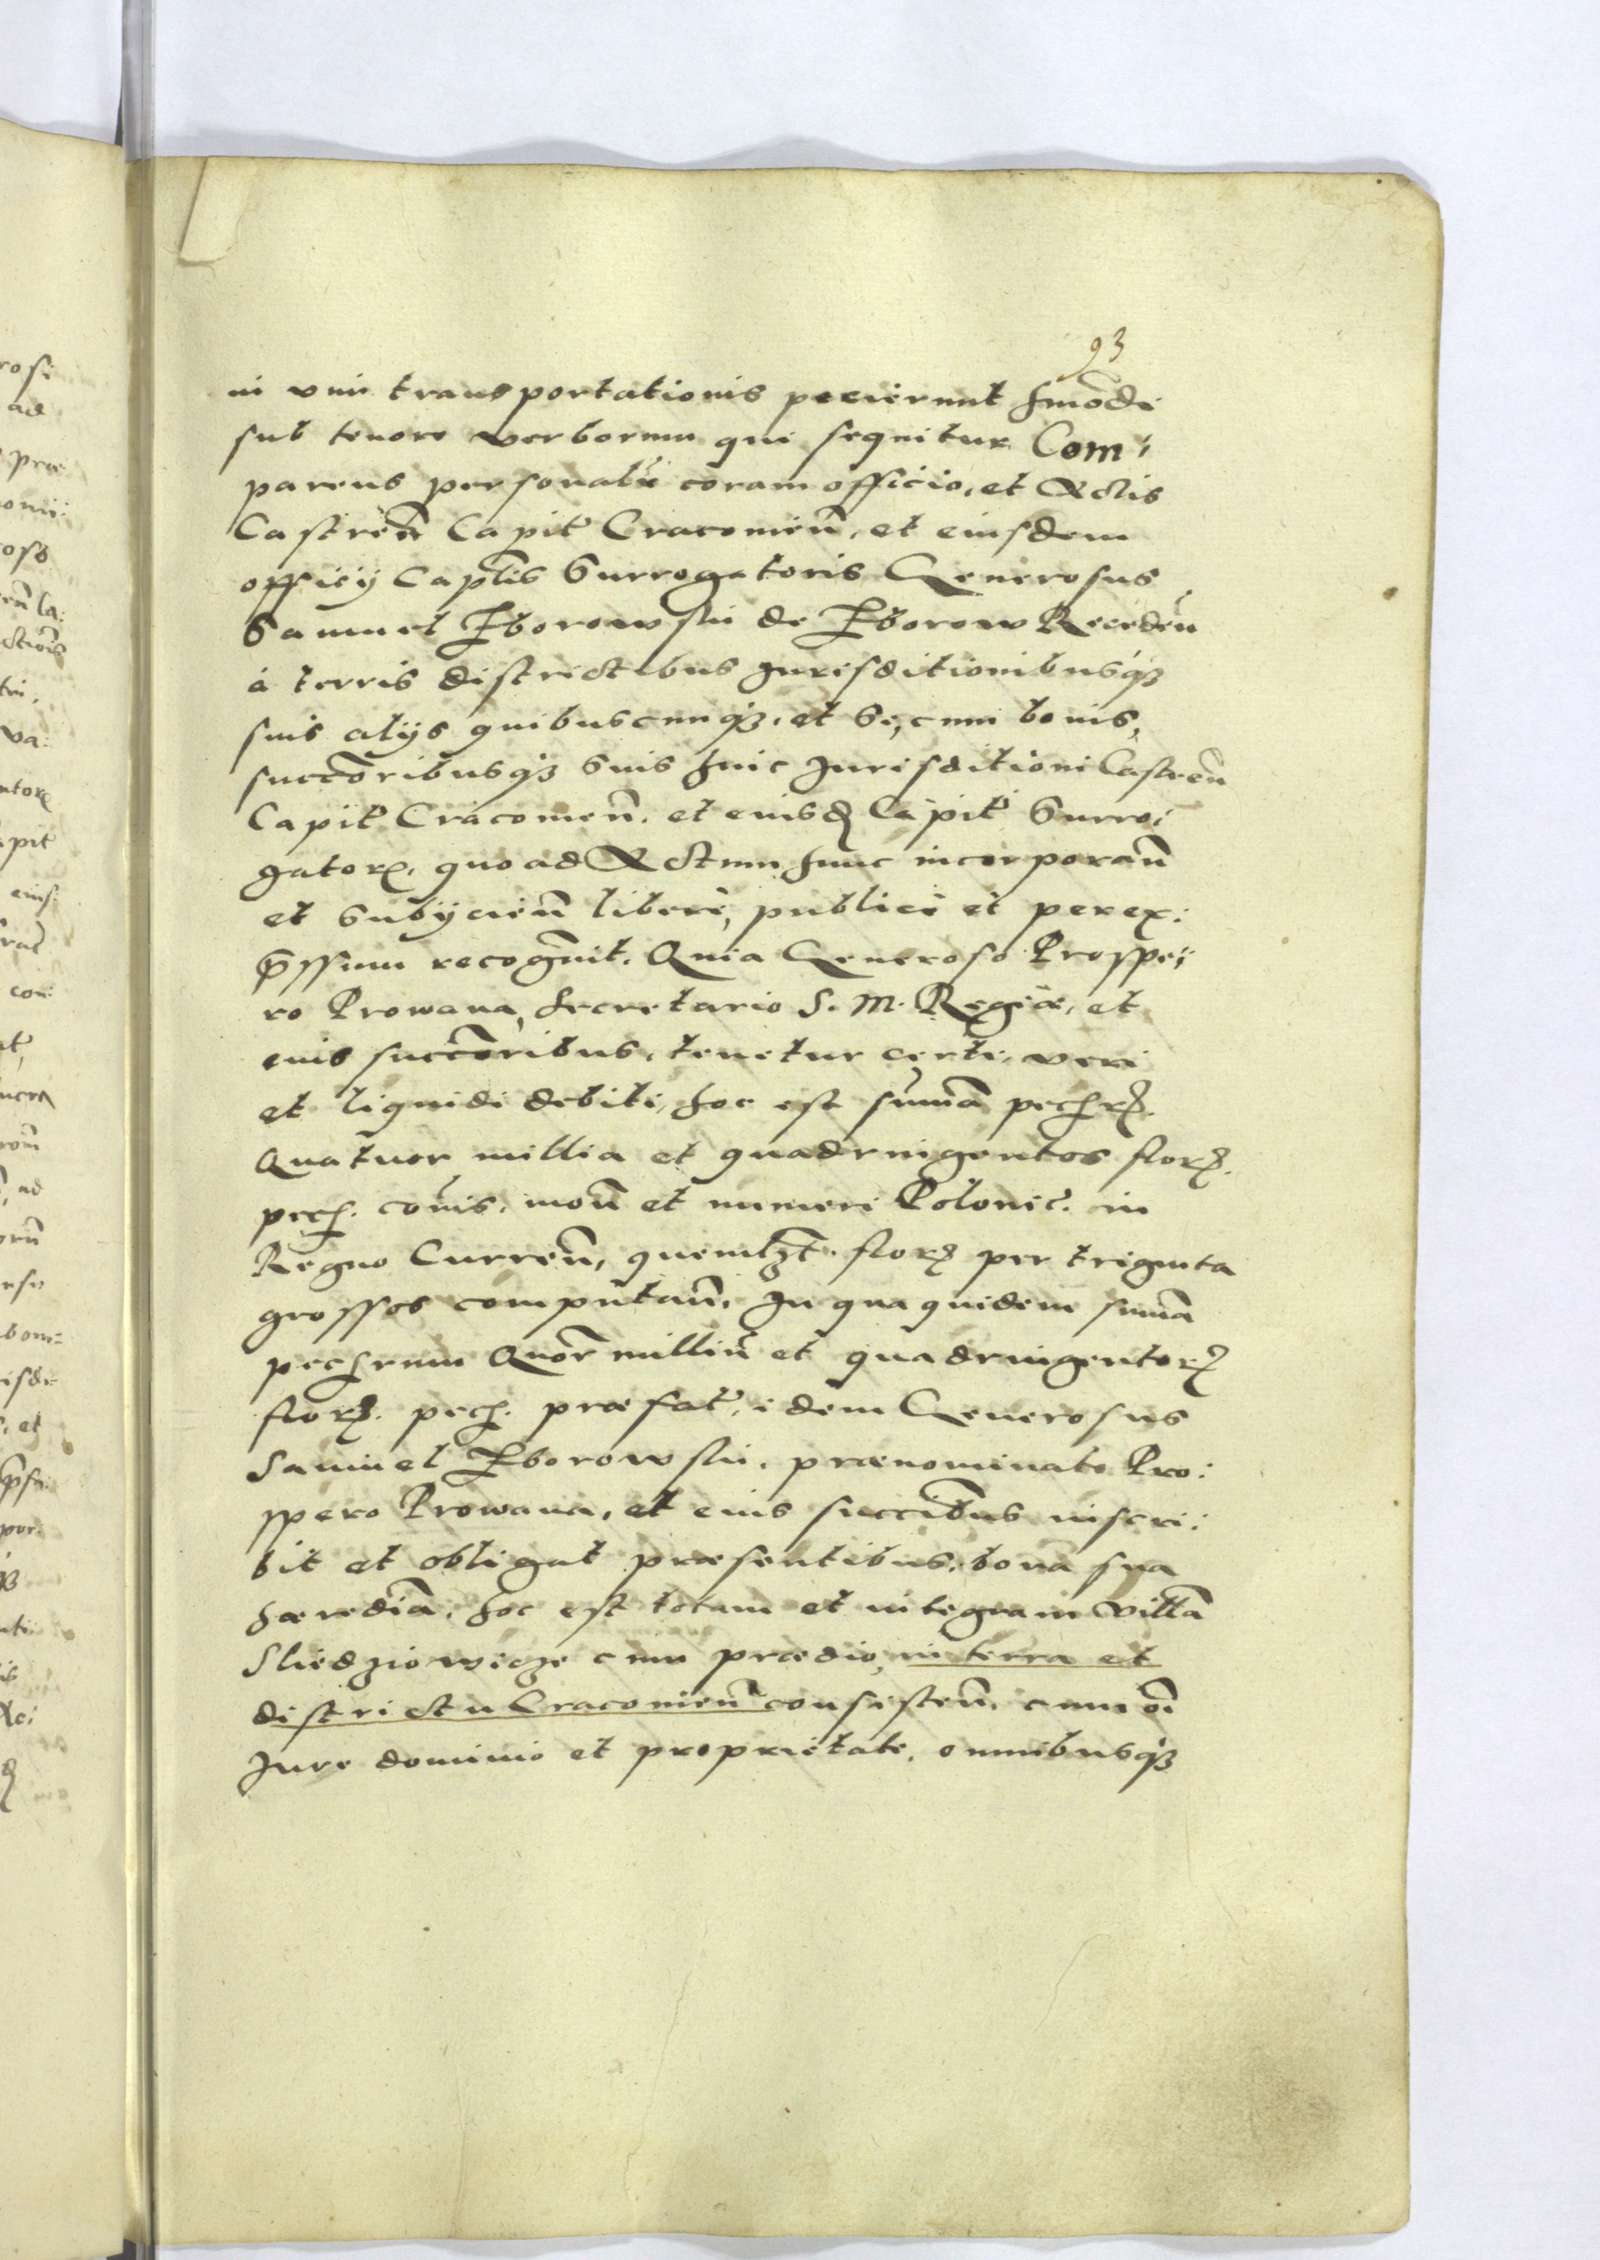 93
in vim transportationis pecierunt hmodi
sub tenore verborum qui sequitur Com:
parens personalr coram officio, et Actis
Castren Capit Cracouien, et eiusdem
officij Caplis Surrogatoris Generosus
Samuel Zborowski de Zborow Receden
à terris districtibus Jurisditionibusq;
suis alijs quibuscunq;, et se, cum bonis,
succoribusq; suis huic Jurisditioni Castren
Capit Cracouien, et eiusd Capit Surro:
gator, quo ad Actum hunc incorporan
et Subijcien libere, publicè et perex:
pssum recognuit. Quia Generoso Prospe:
ro Prowana, Secretario S. M. Regiæ, et
eius succoribus, tenetur certi, veri
et liquidi debiti, hoc est summa pechr.
Quatuor millia et quadringentos flor.
pech. cois, mon et numeri Polonic. in
Regno Curren, quemlzt flor per triginta
grossos computan. In qua quidem summa
pechrum Quor milliu et quadringentor
flor. pech. præfat, idem Generosus
Samuel Zborowski, prænominato Pro:
spero Prowana, et eius succibus inscri:
bit et obligat præsentibus, bona sua
hæredia, hoc est totam et integram villa
Sliedziowicze cum prædio, in terra et
districtu Cracouien consisten, cum oi
Jure dominio et proprietate, omnibusq;